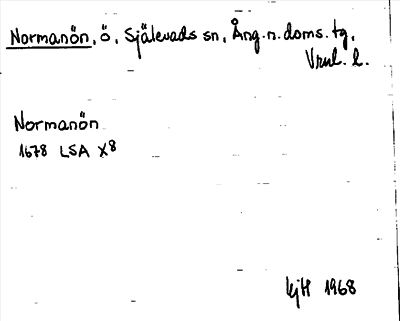 Normanön, ö, Själevads sn, Ång.n.doms.tg,
l.
Normanön
1678 LSA X8
1968